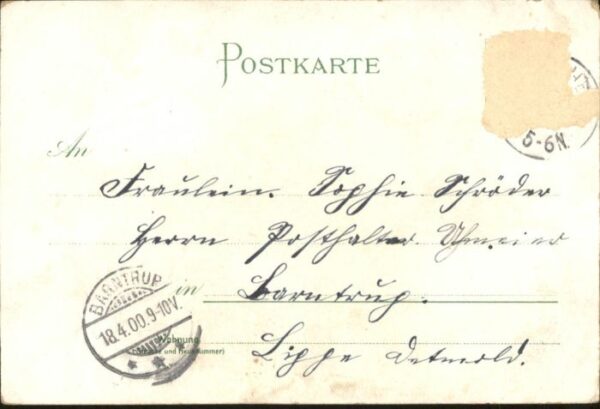 POSTKARTE
5-6N.
An
Fräulein. Sophie Schröder
Herrn Posthalter. Uhmeier
in Barntrup.
BARNTRUP
18.4.00.9-10V.
Wohnung
Lippe Detmold.